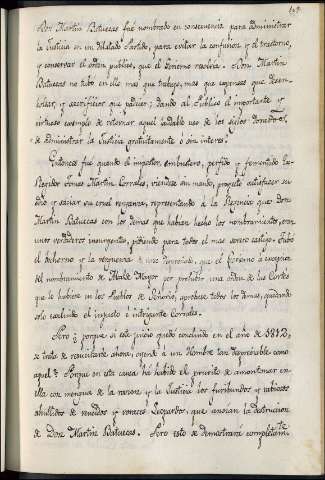 109
Don Martin Batuecas fué nombrado en consecuencia para administrar
la Justicia en un dilatado Partido, para evitar la confusion y el trastorno,
y conservar el orden publico, que el Govierno resolvia. Don Martin
Batuecas no tubo en ello mas que trabajo, mas que expensas que desem-
bolsar, y sacrificios que padecer; dando al Publico el importante y
virtuoso exemplo de retornar aquel laudable uso de los siglos
de administrar la Justicia gratuitamente ó sin interes.
Entonces fué quando el impostor, embustero, perfido y fementido Ex-
Regidor Tomas Martin Corrales, viendose sin mando, proyectó satisfacer su
odio y saciar su cruel venganza, representando á la Regencia que Don
Martin Batuecas con los demas que habian hecho los nombramientos, eran
unos verdaderos insurgentes, pidiendo para todos el mas severo castigo. Tubo
el deshonor y la verguenza que el Govierno á excepcion
del nombramiento de Alcalde Mayor por prohibir una orden de las Cortes
que le hubiese en los Pueblos de Señorio, aprobase todos los demas, quedando
solo excluido el impuesto é intrigante Corrales.
Pero ¿porque si este juicio quedó concluido en el año de 1812,
se trata de resucitarle ahora, oyendo á un Hombre tan despreciable como
aquel? Porque en esta causa há habido el prurito de amontonar en
ella con mengua de la razon y la Justicia los furibundos y rabiosos
ahullidos de venidos y voraces Leopardos, que ansian la destruccion
de Don Martin Batuecas. Pero esto se demostrará completamte